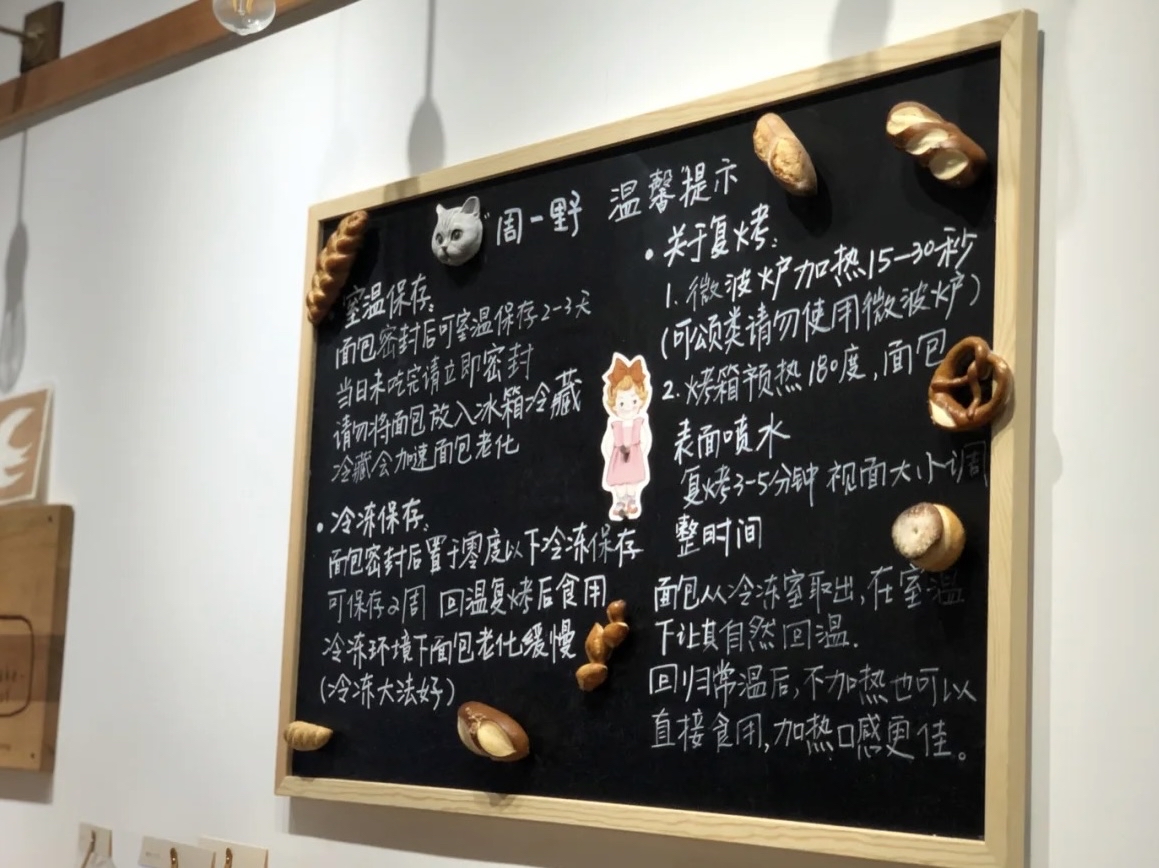 周一野 温馨提示
室温保存:
面包密封后可室温保存2-3天
当日未吃完请立即密封
请勿将面包放入冰箱冷藏
冷藏会加速面包老化
• 冷冻保存:
面包密封后置于零度以下冷冻保存
可保存2周 回温复烤后食用
冷冻环境下面包老化缓慢
(冷冻大法好)
• 关于复烤:
1. 微波炉加热15—30秒
(可颂类请勿使用微波炉)
2. 烤箱预热180度,面包
表面喷水
复烤3-5分钟 视面大小调
整时间
面包从冷冻室取出,在室温
下让其自然回温.
回归常温后,不加热也可以
直接食用,加热口感更佳。